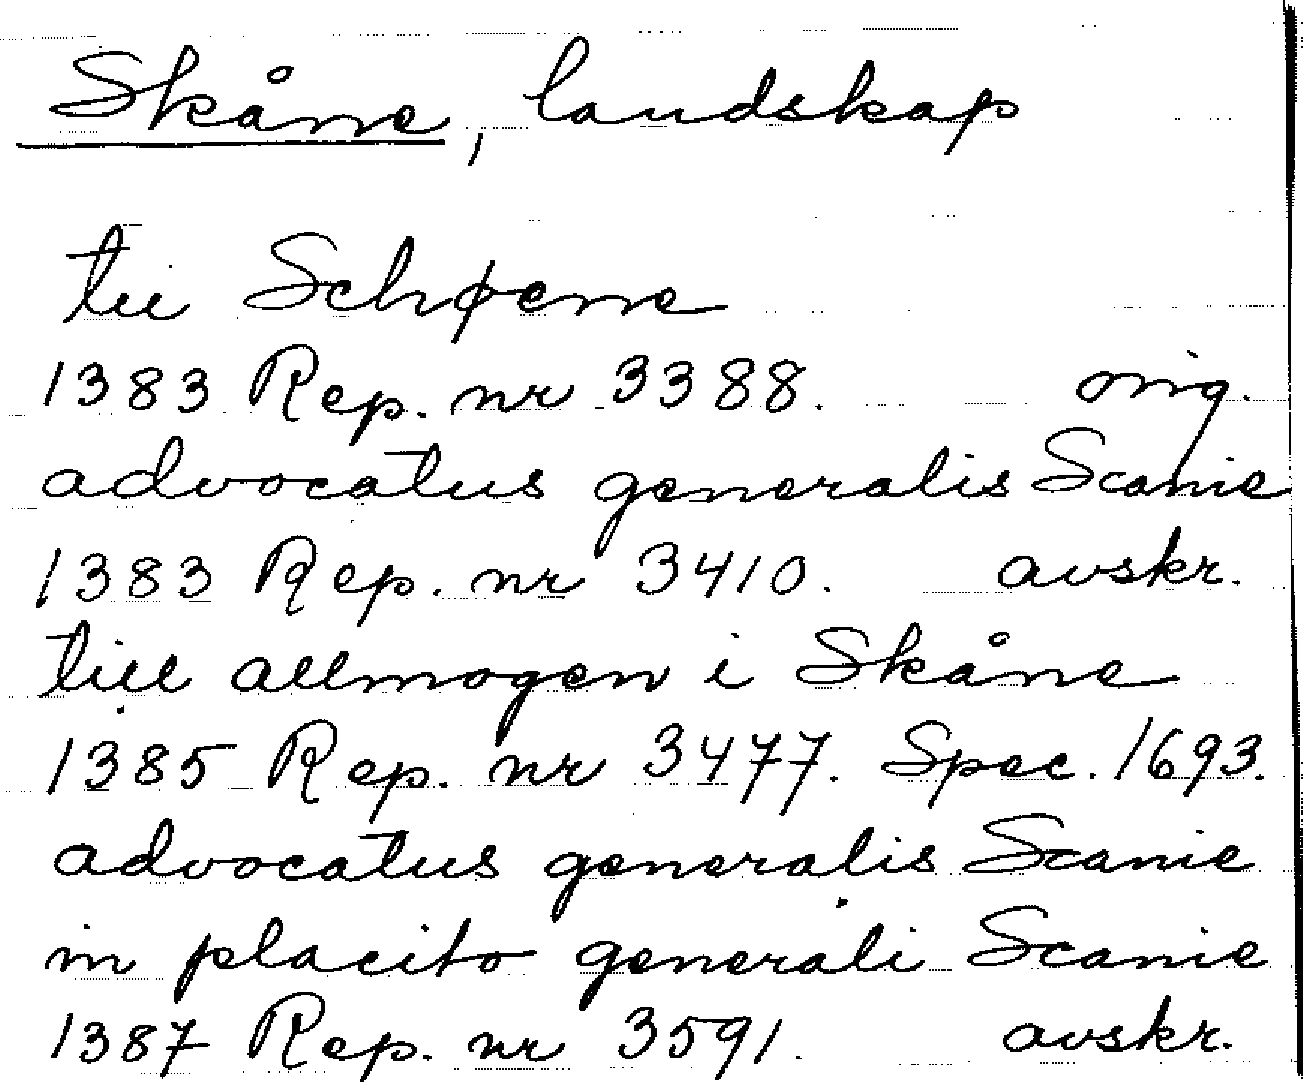 Skåne, landskap
tii Schøene
1383 Rep. nr 3388. orig.
advocatus generalis Scanie
1383 Rep. nr 3410. avskr.
till allmogen i Skåne
1385 Rep. nr 3477. Spec. 1693.
advocatus generalis Scanie
in placito generali Scanie
1387 Rep. nr 3591. avskr.